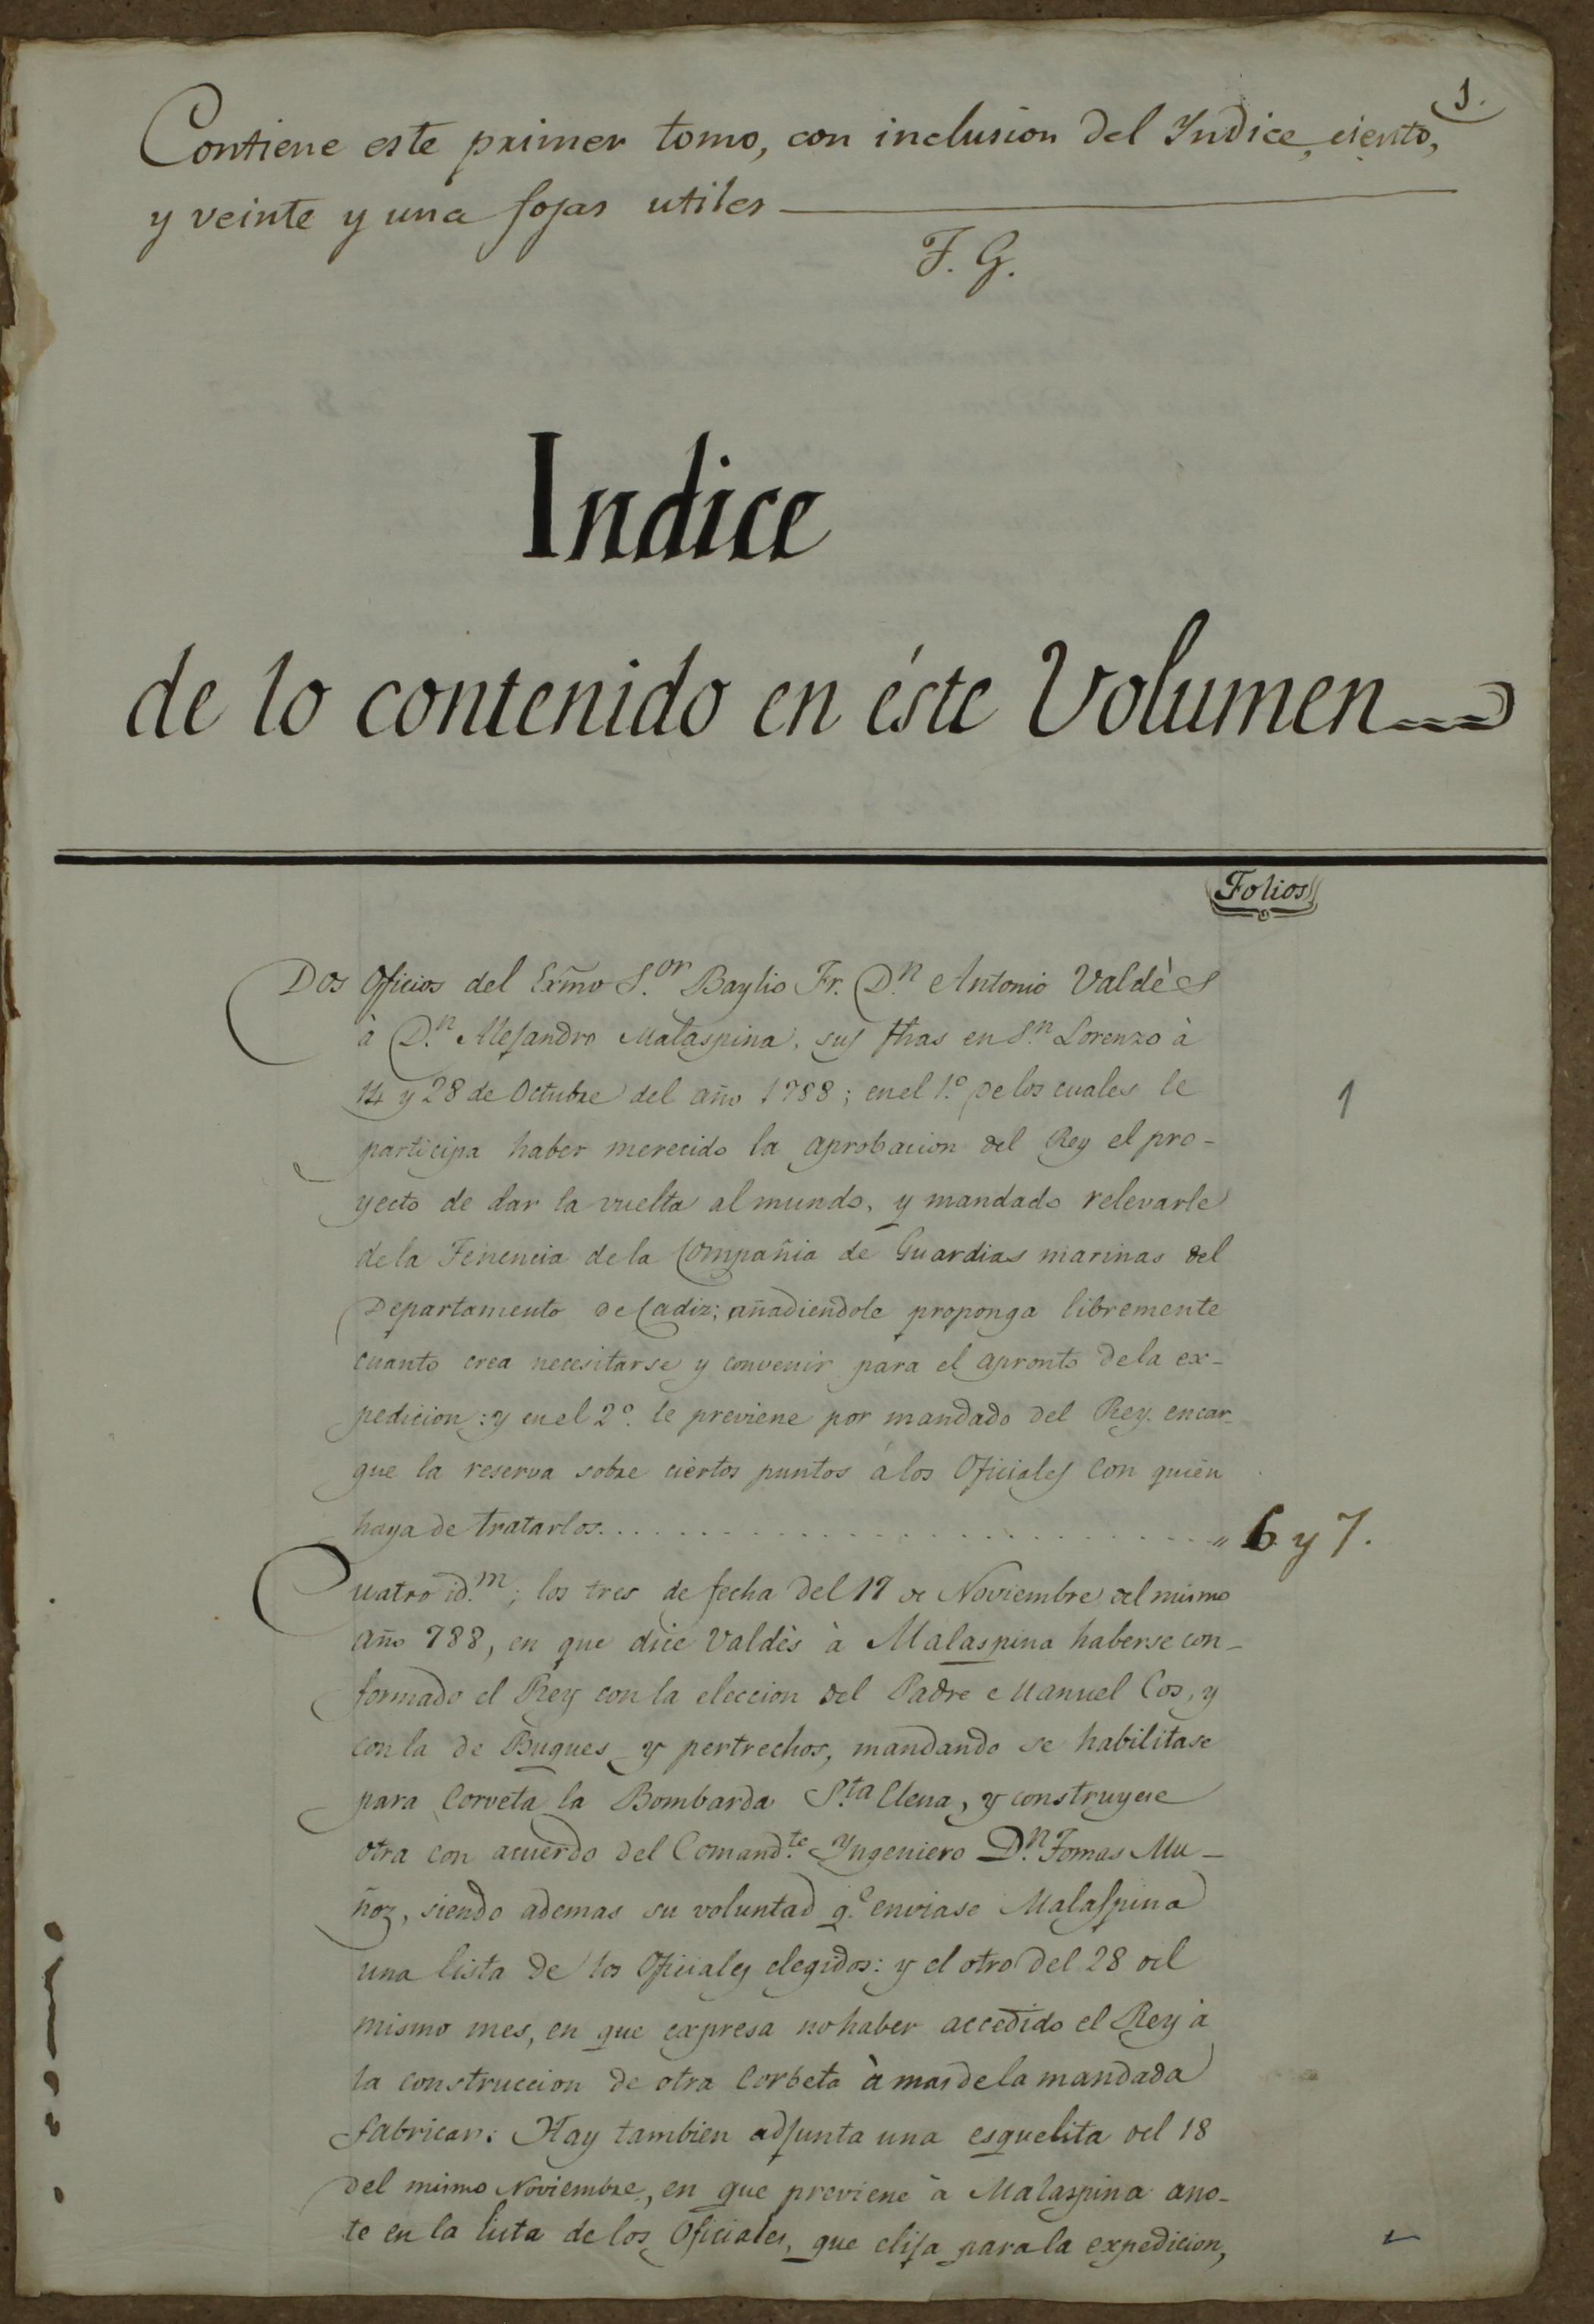 1.
Contiene este primer tomo, con inclusion del Yndice, ciento,
y veinte y una fojas utiles
F. G.
Indice
de lo contenido en éste Volumen
Folios
Dos Oficios del Exm̃o S.or Baylio Fr. D.n Antonio Valdès
à D.n Alejandro Malaspina, sus fhas en S.n Lorenzo à
14 y 28 de Octubre del año 1788; en el 1.º de los cuales le
1
participa haber merecido la aprobacion del Rey el pro-
yecto de dar la vuelta al mundo, y mandado relevarle
de la Tenencia de la Compañia de Guardias marinas del
Departamento de Cadiz; añadiendole proponga libremente
cuanto crea necesitarse y convenir para el apronto de la ex-
pedicion: y en el 2º. le previene por mandado del Rey encar-
gue la reserva sobre ciertos puntos á los Oficiales con quien
haya de tratarlos. . . . . . . . . . . . . . . . . . . . . . . . " 6 y 7.
Cuatro id.m; los tres de fecha del 17 de Noviembre del mismo
año 788, en que dice Valdès à Malaspina haberse con-
formado el Rey con la eleccion del Padre Manuel Cos, y
con la de Buques y pertrechos, mandando se habilitase
para Corveta la Bombarda S.ta Elena, y construyese
otra con acuerdo del Comand.te Yngeniero D.n Tomas Mu-
ñoz, siendo ademas su voluntad q.e enviase Malaspina
una lista de los Oficiales elegidos: y el otro del 28 del
mismo mes, en que expresa no haber accedido el Rey à
la construccion de otra Corbeta à mas de la mandada
fabricar: Hay tambien adjunta una esquelita del 18
del mismo Noviembre, en que previene à Malaspina ano-
te en la lista de los Oficiales, que elija para la expedicion,